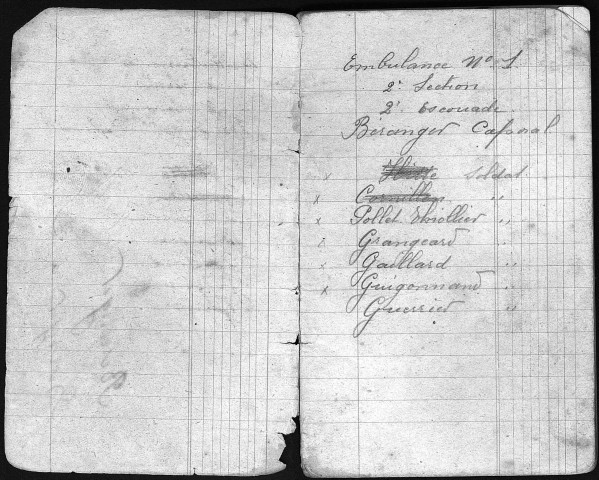 Embulance No 1
2e Section
2e Escouade
Béranger Caporal
x Soldat
x Cornillon "
x Pollet Thiollier "
x Grangeard "
x Gaillard "
x Guigonnand "
Guerrier "